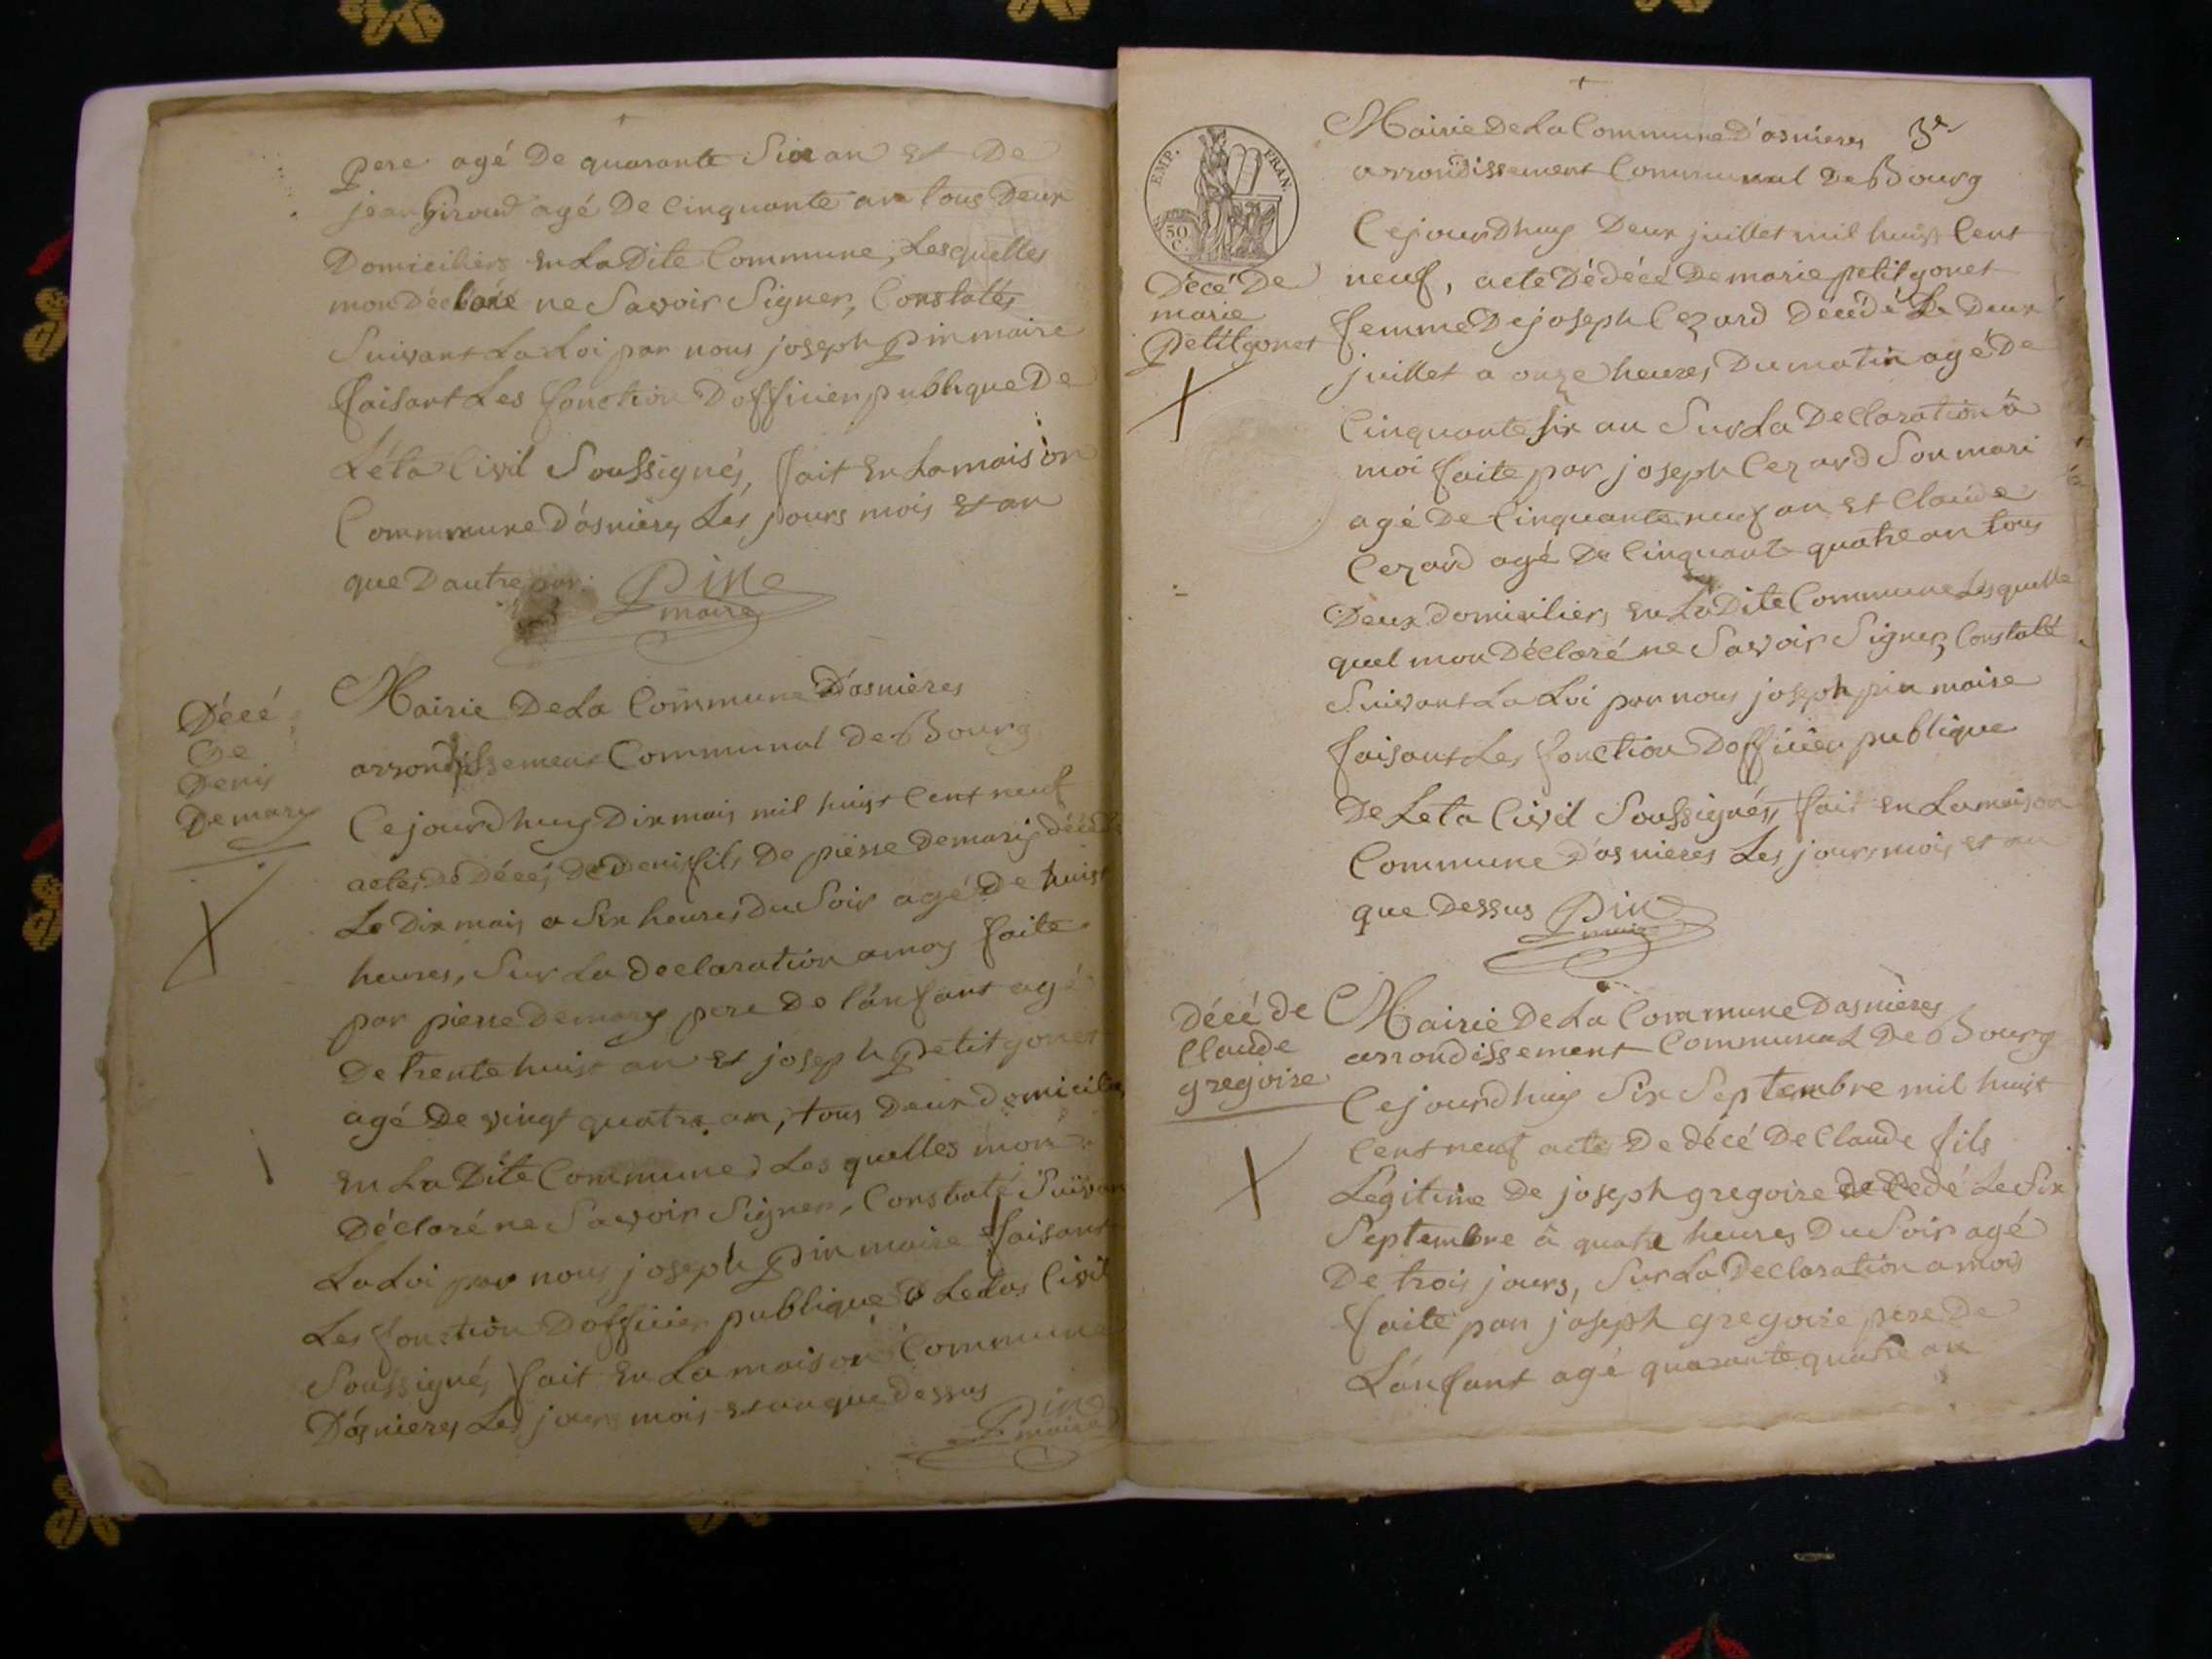 pere agé De quarante Six an et De
jean Giroud agé De Cinquante an tous Deux
Domiciliers en La Dite Commune, Lesquelles
mon déclaré ne Savoir Signer, Constatés
Suivant La Loi par nous joseph pin maire
faisant Les fonction Dofficier publique De
Léta Civil Soussignés, fait en La maison
Commune D'asnieres Les jours mois et an
que Dautre par. Pin
maire
Décé
De
Denis
Demary
Mairie De La Commune D'asnieres
arrondissement Communal De Bourg
Cejourdhuy Dix mais mil huist Cent neuf
actes De Décés De Denis fils De pierre Demary décédé
Le Dix mais a Six heures Du Soir agé De huist
heures, Sur La declaration a moy faite
par pierre Demary pere De l'anfant agé
De trente huist an et joseph petitgonet
agé De vingt quatre an, tous Deux domicilier
en La Dite Commune Les quelles mon
Déclaré ne Savoir Signer, Constaté Suivant
La Loi par nous joseph pin maire faisant
Les fonction Dofficier publique D Letas Civil
Soussignés fait en La maison Commune
D'asnieres Les jours mois et an que dessus
Pin
maire
EMP. FRAN.
50
C.
3e
Mairie De La Commune D'asnieres
arrondissement Communal De Bourg
Cejourdhuy Deux juillet mil huist Cent
Décé De
marie
Petitgonet
neuf, acte Dédécé De marie petitgonet
femme De joseph Cezard Décédé Le Deux
juillet a onze heures Du matin agé De
Cinquante six an Sur La Declaration à
moi faite par joseph Cezard Son mari
agé De Cinquante neuf an et Claude
Cezard agé De Cinquante quatre an tous
Deux domicilier en La Dite Commune Lesquelle
quel mon Déclaré ne Savoir Signer, Constaté
Suivant La Loi par nous joseph pin maire
faisant Les fonction Dofficier publique
De Leta Civil Soussignés, fait en La maison
Commune D'asnieres Les jours mois et an
que Dessus Pin
maire
Décé de
Claude
gregoire
Mairie De La Commune Dasnieres
arrondissement Communal De Bourg
Cejourdhuy Six Septembre mil huist
Cent neuf acte De décé De Claude fils
Légitime De joseph gregoire decedé Le Six
Septembre à quatre heures Du Soir agé
De trois jours, Sur La Declaration a moi
faite par joseph gregoire pere De
L'anfant agé quarante quatre an